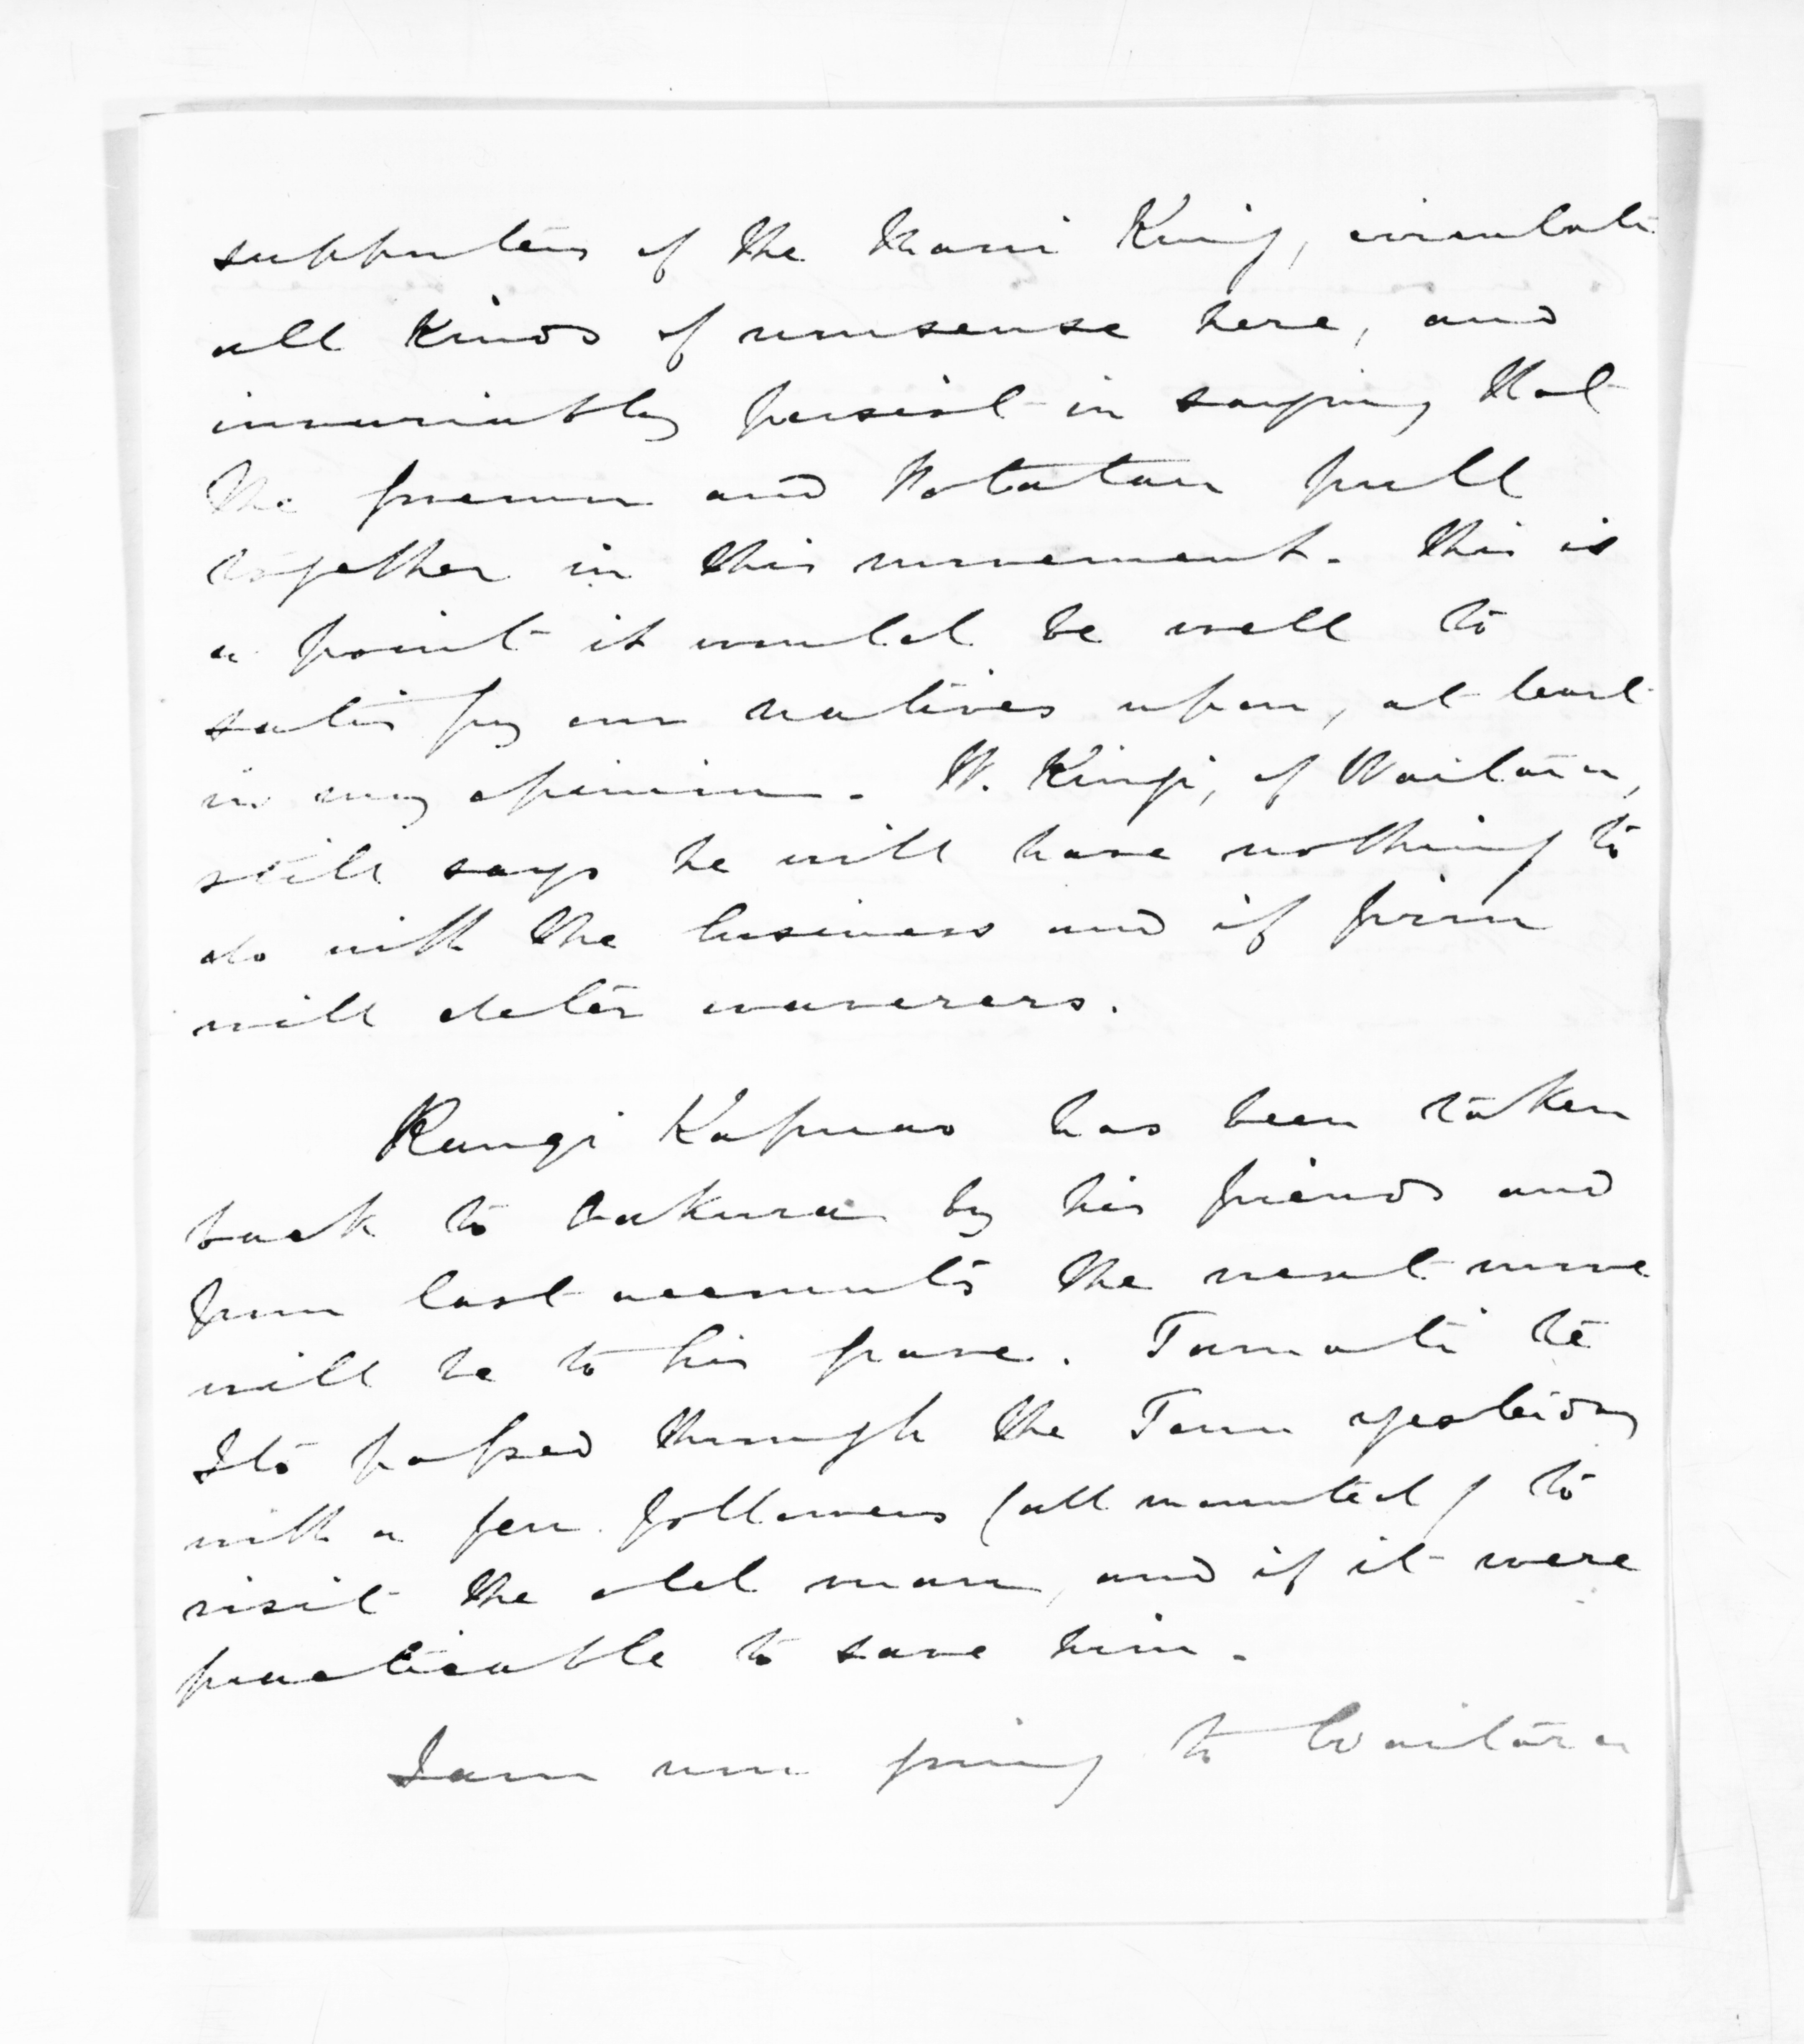 supporters of the Maori King, circulate
all kinds of nonsense here, and
invariably persist in saying that
the Governor and Potatau pull
together in this movement. This is
a point it would be well to
satisfy our natives upon, at least
in my opinion. W. Kingi, of Waitara,
still says he will have nothing to
do with the business and if firm
will deter waverers.
Rangi Kapuao has been taken
back to Oakura by his friends and
from last accounts the next move
will be to his grave. Tamati te
Ito passed through the Town yesterday
with a few followers (all mounted) to
visit the old man, and if it were
practicable to save him.
I am now going to Waitara